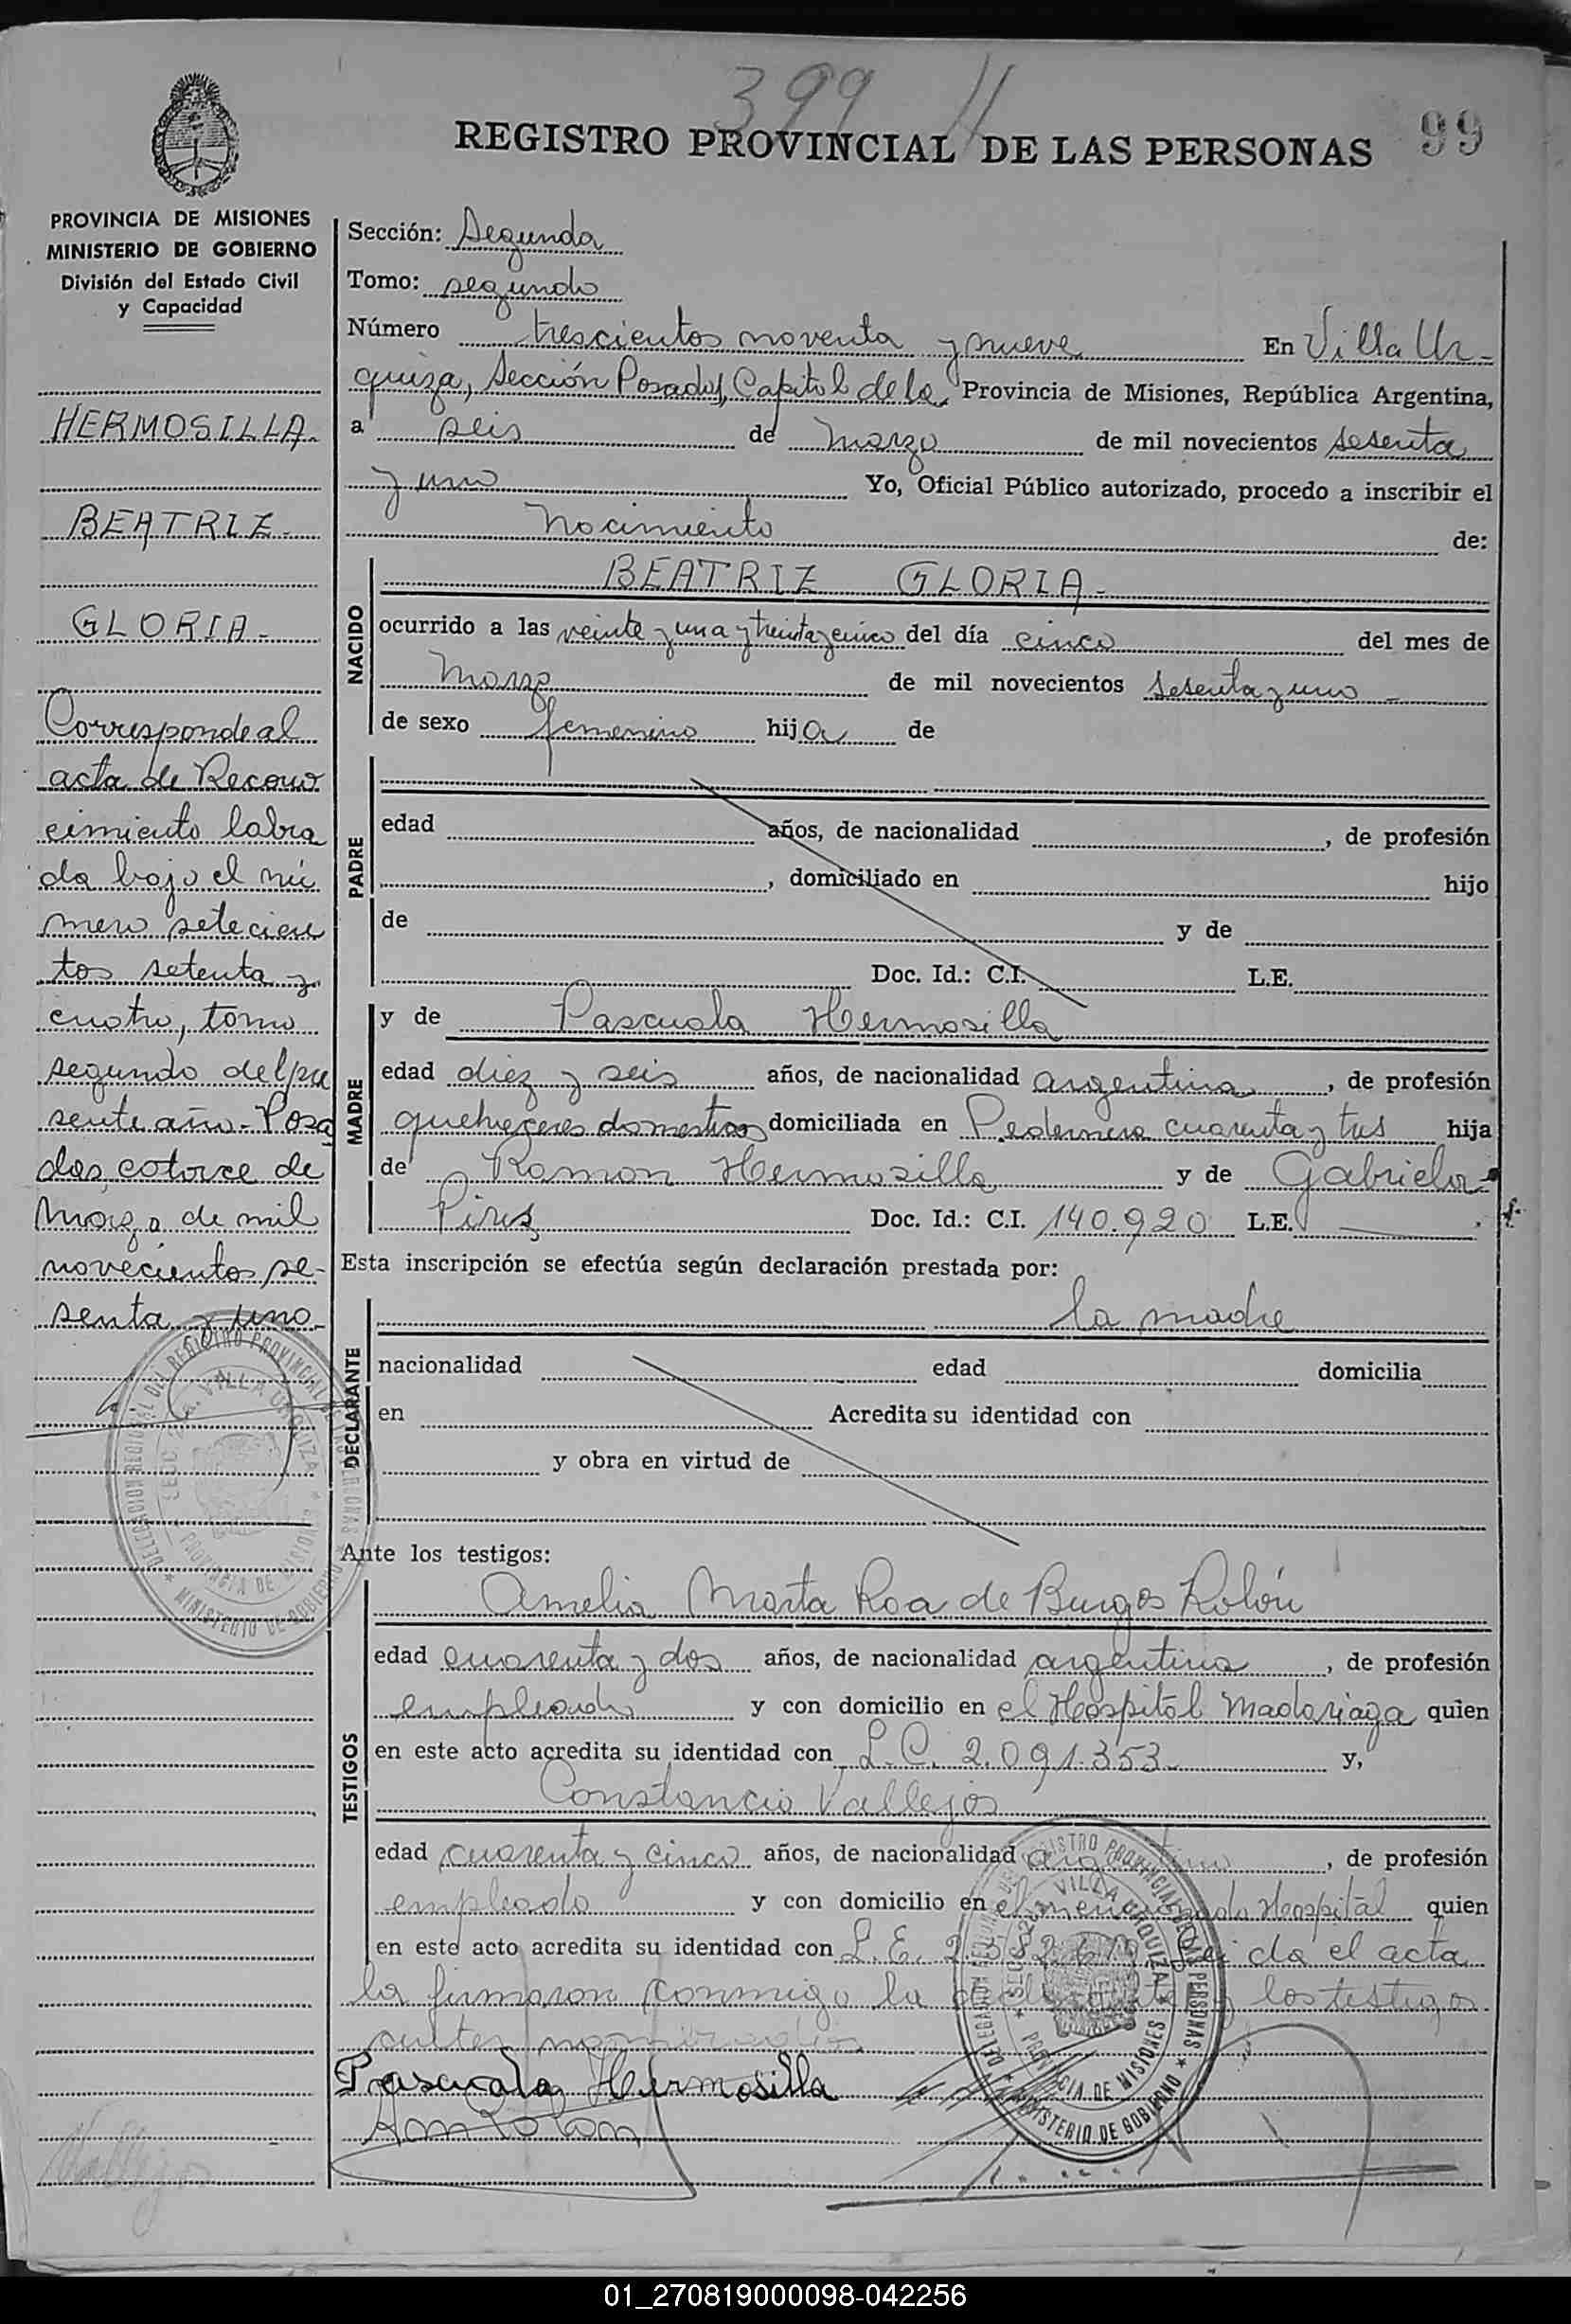 399
REGISTRO PROVINCIAL DE LAS PERSONAS
99
PROVINCIA DE MISIONES
MINISTERIO DE GOBIERNO
División del Estado Civil
y Capacidad
HERMOSILLA
BEATRIZ
GLORIA
Corresponde al
acta de Recono
cimiento labra
da bajo el nú
mero setecien
tos setenta y
cuatro, tomo
segundo del pre
sente año - Posa
das, catorce de
Marzo de mil
novecientos se-
senta y uno
Sección: Segunda
Tomo: segundo
Número trescientos noventa y nueve En Villa Ur-
quiza, Sección Posadas, Capital de la Provincia de Misiones, República Argentina,
a seis de marzo de mil novecientos sesenta
y uno Yo, Oficial Público autorizado, procedo a inscribir el
nacimiento de:
NACIDO
BEATRIZ GLORIA-
ocurrido a las veinte y una y treinta y cinco del día cinco del mes de
marzo de mil novecientos sesenta y uno
de sexo femenino hija de
PADRE
edad años, de nacionalidad , de profesión
, domiciliado en hijo
de y de
Doc. Id.: C.I. L.E.
MADRE
y de Pascuala Hermosilla
edad diez y seis años, de nacionalidad argentina, de profesión
quehaceres domesticos domiciliada en Pedernera cuarenta y tres hija
de Ramon Hermosilla y de Gabriela
Pires Doc. Id.: C.I. 140.920 L.E.
Esta inscripción se efectúa según declaración prestada por:
DECLARANTE
la madre
nacionalidad edad domicilia
en Acredita su identidad con
y obra en virtud de
Ante los testigos:
TESTIGOS
Amelia Marta Roa de Burgos Rolón
edad cuarenta y dos años, de nacionalidad argentina, de profesión
empleada y con domicilio en el Hospital Madariaga quien
en este acto acredita su identidad con L.C. 2.091.353 y,
Constancio Vallejos
edad cuarenta y cinco años, de nacionalidad argentino, de profesión
empleado y con domicilio en el mencionado Hospital quien
en este acto acredita su identidad con L.E. Leida el acta
la firmaron conmigo la declarante y los testigos
antes nombrados
Pascuala Hermosilla
Vallejos
DELEGACION REGIONAL DEL REGISTRO PROVINCIAL DE LAS PERSONAS
SECC. 2da. VILLA URQUIZA
PROVINCIA DE MISIONES
MINISTERIO DE GOBIERNO
01_270819000098-042256